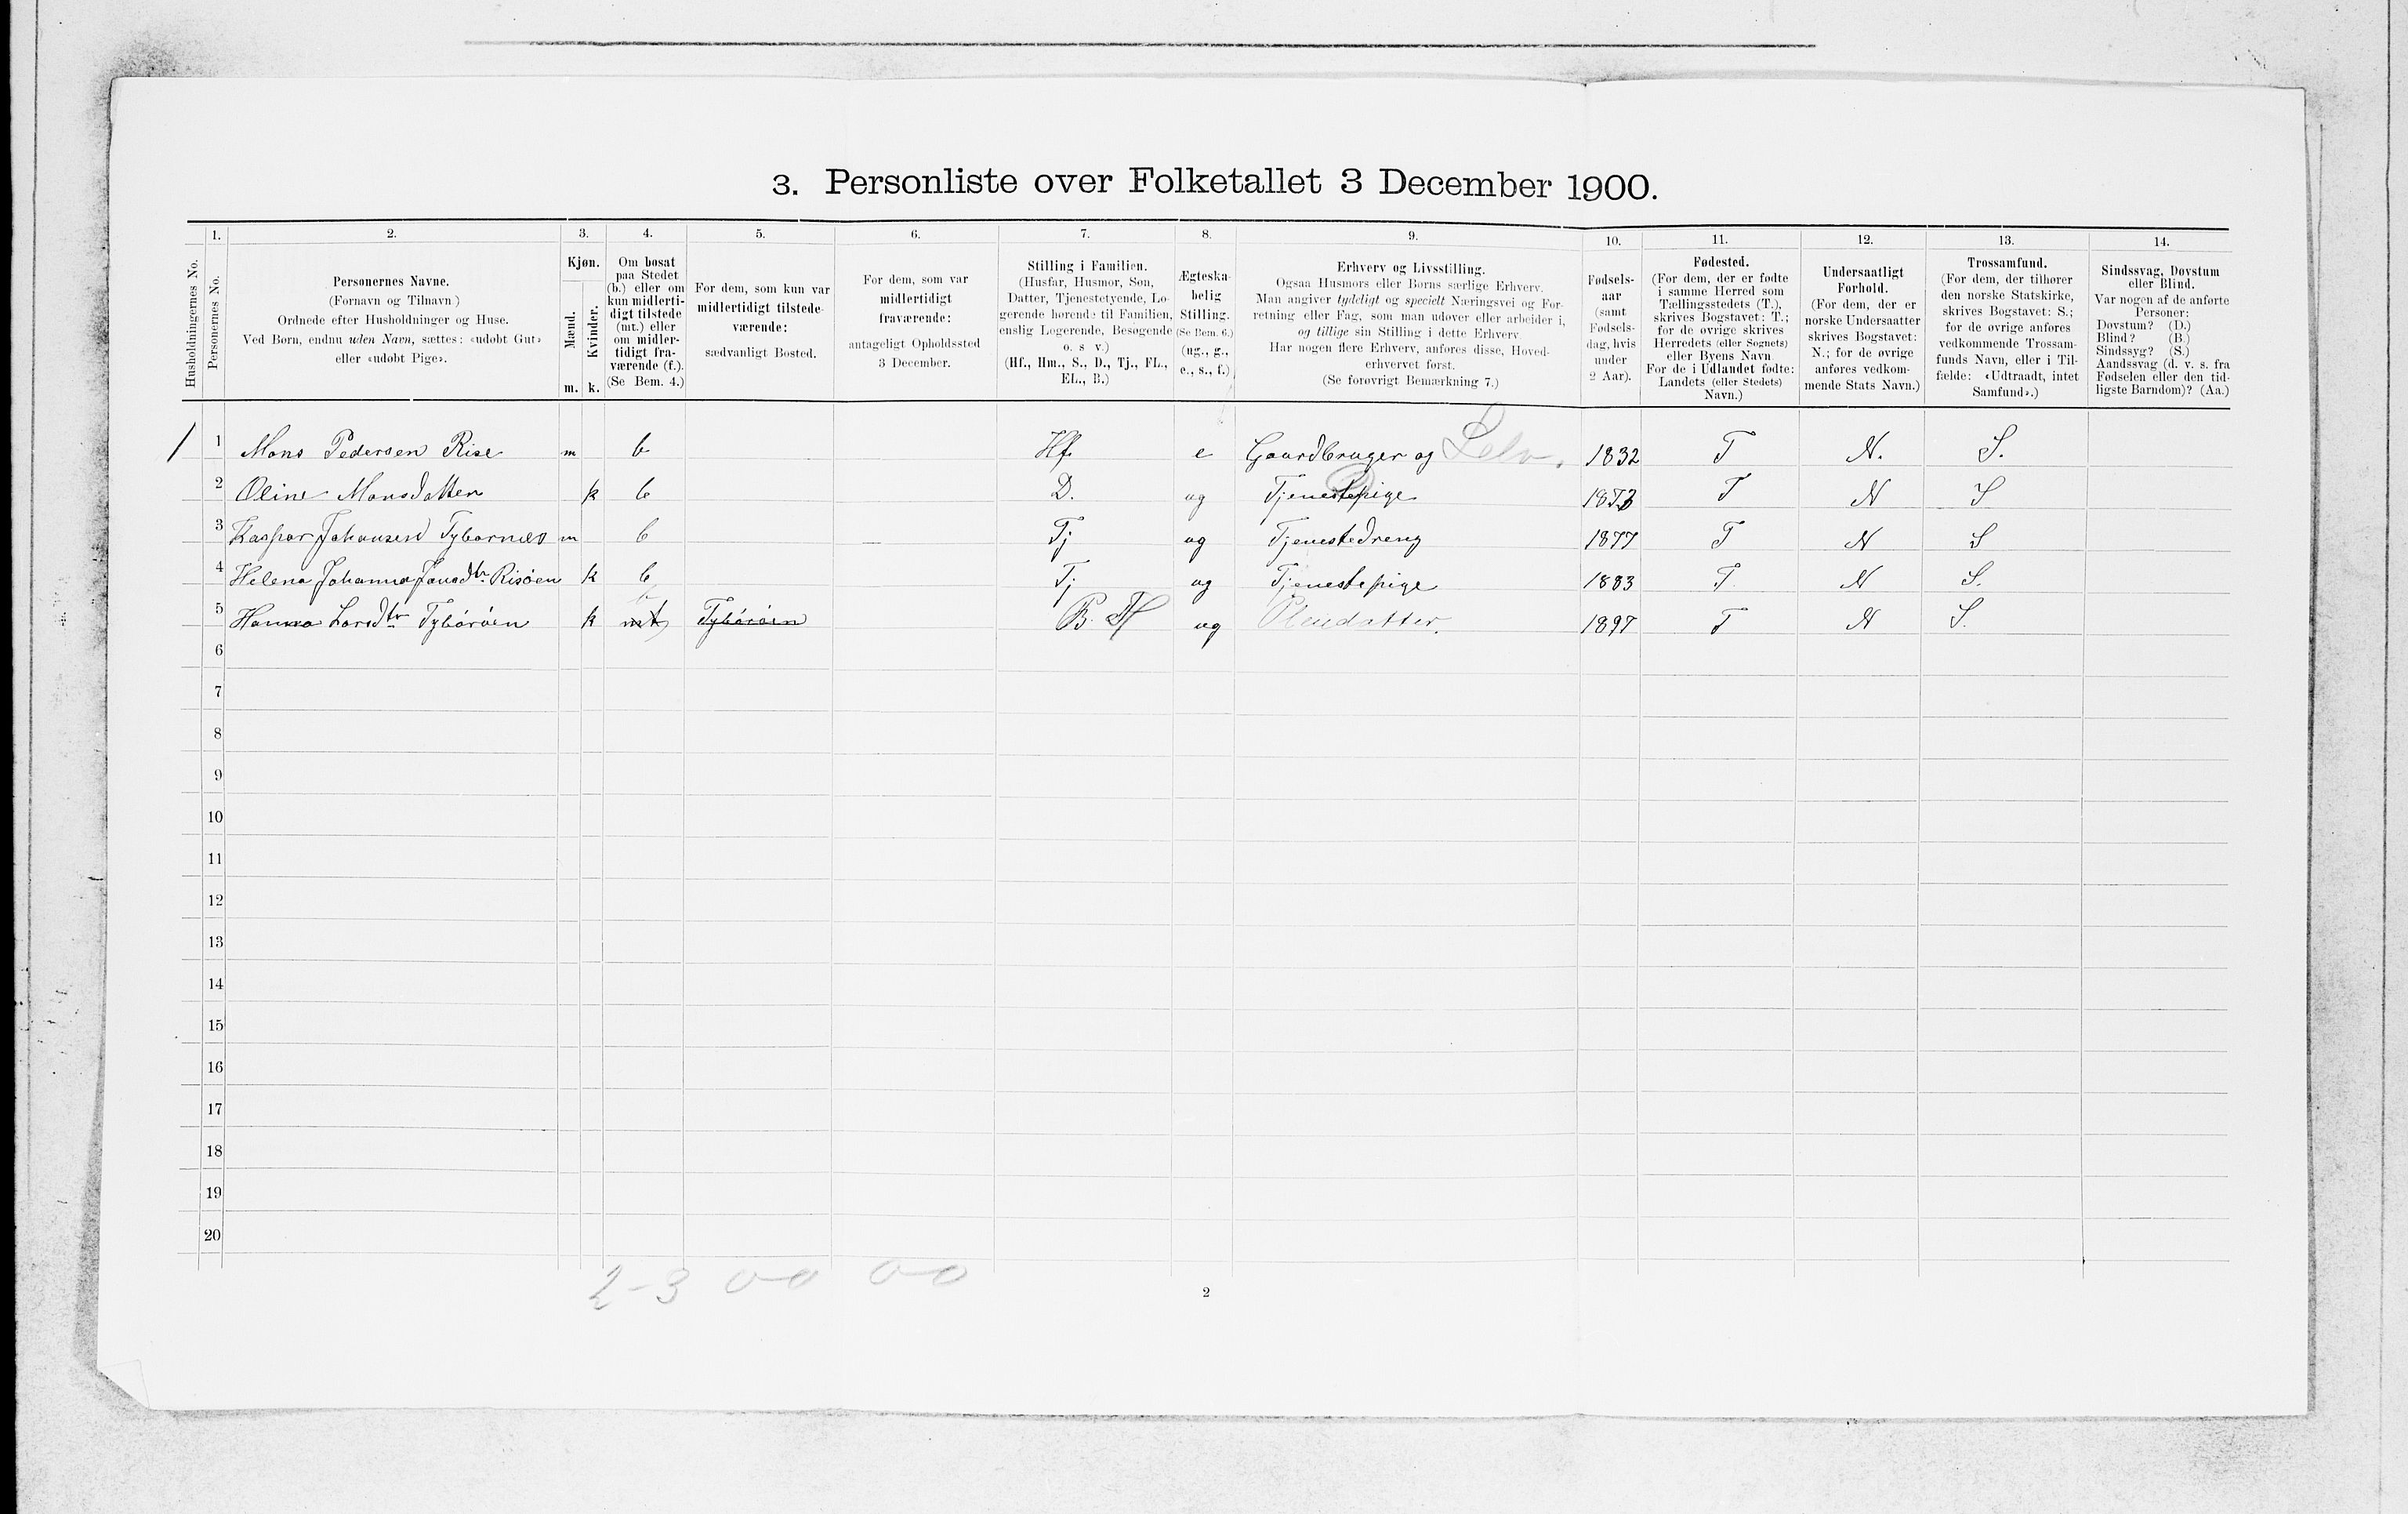 3. Personliste over Folketallet 3 December 1900.
1. 2. 3. 4. 5. 6. 7. 8. 9. 10. 11. 12. 13. 14.
Husholdningernes No.
Personernes No.
Personernes Navne.
(Fornavn og Tilnavn.)
Ordnede efter Husholdninger og Huse.
Ved Børn, endnu uden Navn, sættes: «udøbt Gut»
eller «udøbt Pige».
Kjøn.
Mænd.
Kvinder.
m. k.
Om bosat
paa Stedet
(b.) eller om
kun midlerti-
digt tilstede
(mt.) eller
om midler-
tidigt fra-
værende (f.).
(Se Bem. 4.)
For dem, som kun var
midlertidigt tilstede-
værende:
sædvanligt Bosted.
For dem, som var
midlertidigt
fraværende:
antageligt Opholdssted
3 December.
Stilling i Familien.
(Husfar, Husmor, Søn,
Datter, Tjenestetyende, Lo-
gerende hørende til Familien,
enslig Logerende, Besøgende
o. s v.)
(Hf., Hm., S., D., Tj., FL.,
EL., B.)
Ægteska-
belig
Stilling.
(Se Bem. 6.)
(ug., g.,
e., s., f.)
Erhverv og Livsstilling.
Ogsaa Husmors eller Børns særlige Erhverv.
Man angiver tydeligt og specielt Næringsvei og For-
retning eller Fag, som man udøver eller arbeider i,
og tillige sin Stilling i dette Erhverv.
Har nogen flere Erhverv, anføres disse, Hoved-
erhvervet først.
(Se forøvrigt Bemærkning 7.)
Fødsels-
aar
(samt
Fødsels-
dag, hvis
under
2 Aar).
Fødested.
(For dem, der er fødte
i samme Herred som
Tællingsstedets (T.),
skrives Bogstavet: T.;
for de øvrige skrives
Herredets (eller Sognets)
eller Byens Navn
For de i Udlandet fødte:
Landets (eller Stedets)
Navn.)
Undersaatligt
Forhold.
(For dem, der er
norske Undersaatter
skrives Bogstavet:
N.; for de øvrige
anføres vedkom-
mende Stats Navn.)
Trossamfund.
(For dem, der tilhører
den norske Statskirke,
skrives Bogstavet: S.;
for de øvrige anføres
vedkommende Trossam-
funds Navn, eller i Til-
fælde: «Udtraadt, intet
Samfund».)
Sindssvag, Døvstum
eller Blind.
Var nogen af de anførte
Personer:
Døvstum? (D.)
Blind? (B.)
Sindssyg? (S.)
Aandssvag (d. v. s. fra
Fødselen eller den tid-
ligste Barndom)? (Aa.)
1 1 Mons Pedersen Rise m b Hf e Gaardbruger og Selv. 1832 T N. S.
2 Oline Monsdatter k b D. ug Tjenestepige D T N S
3 Kaspar Johansen Tybornes m b Tj ug Tjenestedreng 1877 T N S
4 Helena Johanna Jansdtr. Risøen k b Tj ug Tjenestepige 1883 T. N S.
5 Hanna Larsdtr Tybørøen k b mt Tybørøen B. Fl ug Pleiedatter. 1897 T N S.
6
7
8
9
10
11
12
13
14
15
16
17
18
19
20
2-3 00 00
2